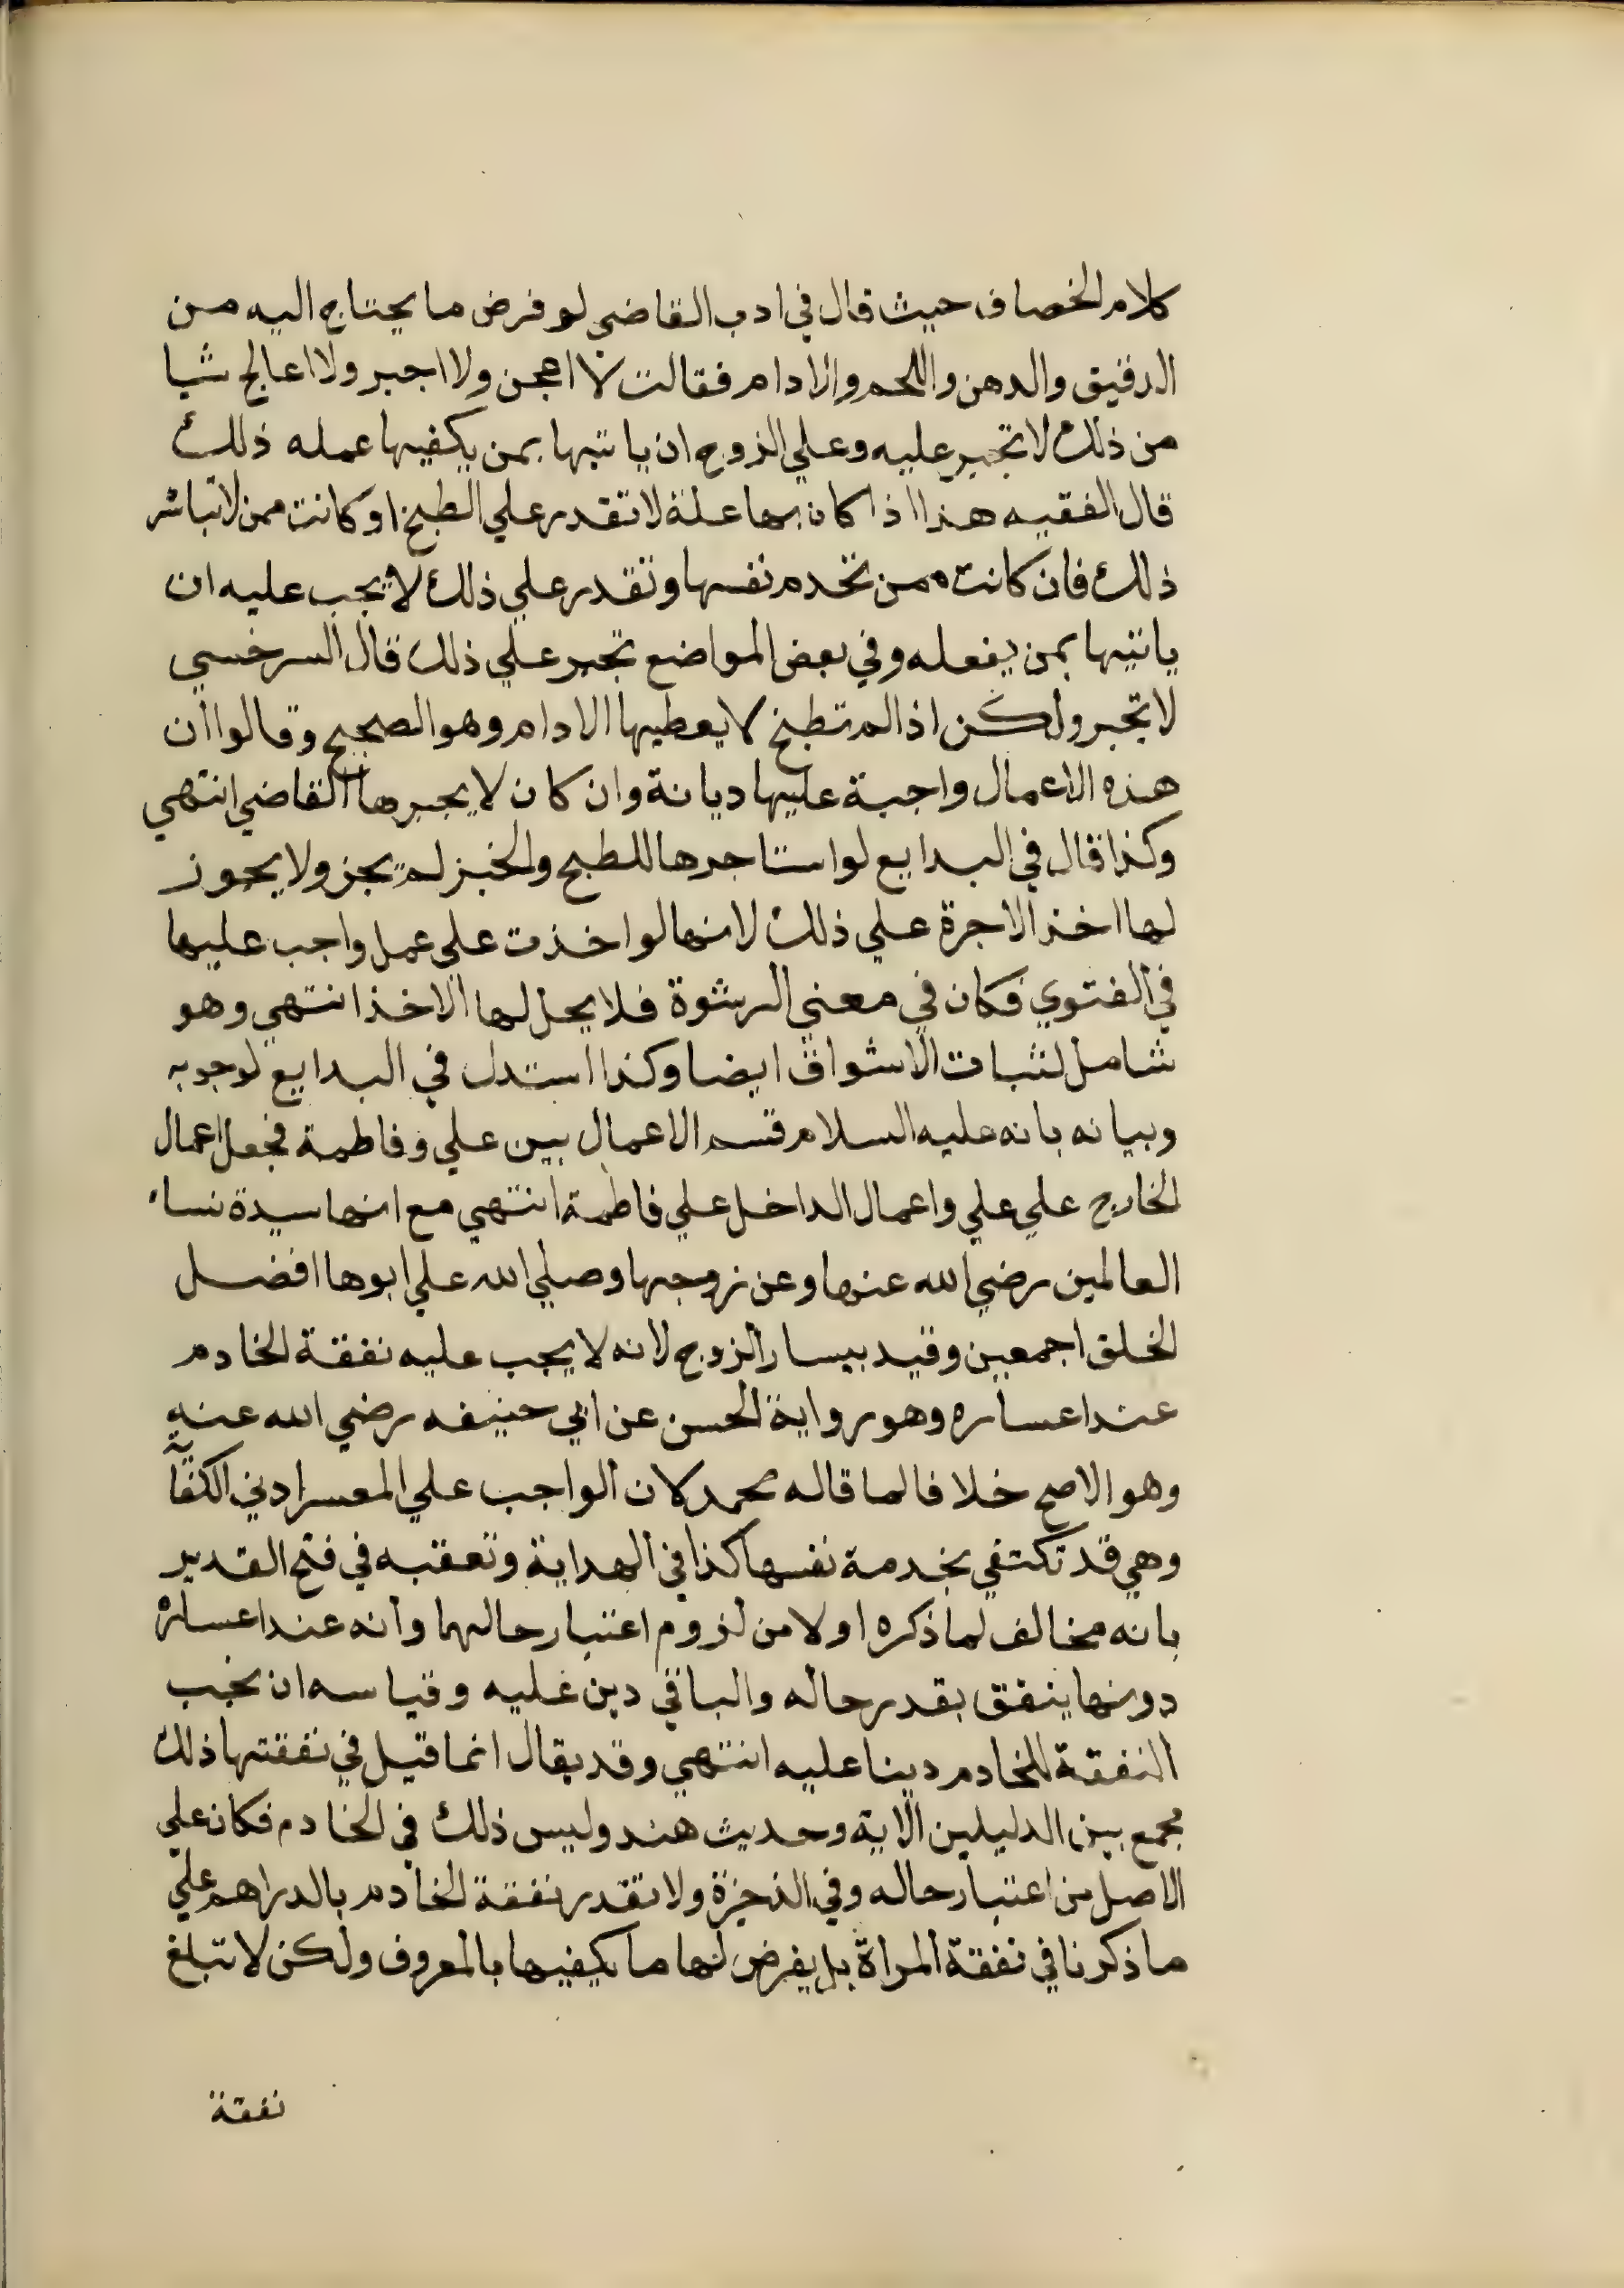 كلام الخصاف حيث قال في ادب القاضي لو فرض ما يحتاج اليه من
الدقيق والدهن واللحم والادام فقالت لا اعجن ولا اجبر ولا اعالج شيا
من ذلك لا تجبر عليه وعلي الزوج ان ياتيها بمن يكفيها عمله ذلك
قال الفقيه هذا اذا كان بها علة لا تقدر علي الطبخ او كانت ممن لا تباشر
ذلك فان كانت ممن تخدم نفسها وتقدر علي ذلك لا يجب عليه ان
ياتيها بمن يفعله وفي بعض المواضع تجبر علي ذلك قال السرخسي
لا تجبر ولكن اذا لم تطبخ لا يعطيها الادام وهو الصحيح وقالوا ان
هذه الاعمال واجبة عليها ديانة وان كان لا يجبرها القاضي انتهي
وكذا قال في البدايع لو استاجرها للطبح والخبز لم يجز ولا يجوز
لها اخذ الاجرة علي ذلك لانها لو اخذت علي عمل واجب عليها
في الفتوي فكان في معني الرشوة فلا يحل لها الاخذ انتهي وهو
شامل لثبات الاسواق ايضا وكذا استدل في البدايع لوجوبه
وبيانه بانه عليه السلام قسم الاعمال بين علي وفاطمة فجعل اعمال
الخارج علي علي واعمال الداخل علي فاطمة انتهي مع انها سيدة نساء
العالمين رضي الله عنها وعن زوجها وصلي الله علي ابوها افضل
الخلق اجمعين وقيد بيسار الزوج لانه لا يجب عليه نفقة الخادم
عند اعساره وهو رواية الحسن عن ابي حنيفه رضي الله عنه
وهو الاصح خلافا لما قاله محمد لان الواجب علي المعسر ادني الكفاية
وهي قد تكتفي بخدمة نفسها كذا في الهداية وتعقبه في فتح القدير
بانه مخالف لما ذكره اولا من لزوم اعتبار حالهما وانه عند اعساره
دونها ينفق بقدر حاله والباقي دين عليه وقياسه ان تجب
النفقة للخادم دينا عليه انتهي وقد يقال انما قيل في نفقتها ذلك
جمع بين الدليلين الاية وحديث هند وليس ذلك في الخادم فكان علي
الاصل من اعتبار حاله وفي الذخيرة ولا تقدر نفقة الخادم بالدراهم علي
ما ذكرنا في نفقة المراة بل يفرض لها ما يكفيها بالمعروف ولكن لا تبلغ
نفقة